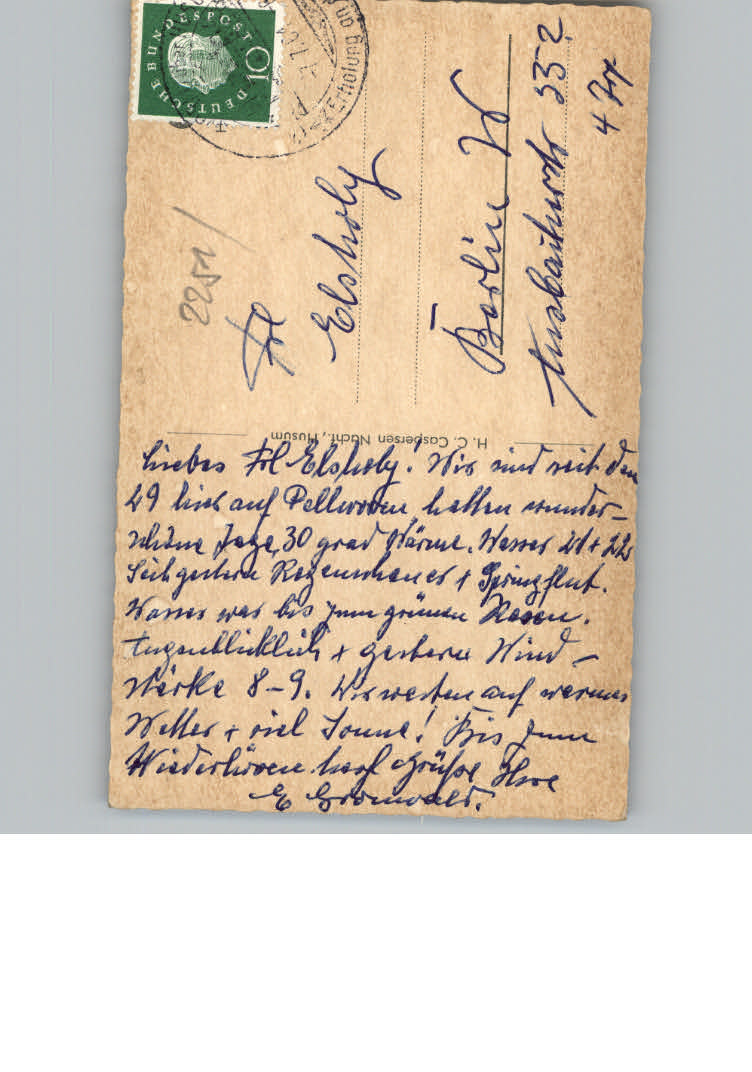 DEUTSCHE BUNDESPOST
10
Erholung
2251
Frl
Elsholz
Berlin W
Ansbacherstr 33 2
4 Trp
H. C. Caspersen Nachf., Husum
Liebes Frl Elsholz! Wir sind seit dem
29 hier auf Pellworm, hatten wunder-
schöne Tage, 30 grad Wärme. Wasser 21 + 22
Seit gestern Regenschauer + Springflut.
Wasser war bis zum grünen Rasen.
Augenblicklich + gestern Wind-
stärke 8-9. Wir warten auf warmes
Wetter + viel Sonne! Bis zum
Wiederhören herzl Grüße Ihre
E Gronwald.